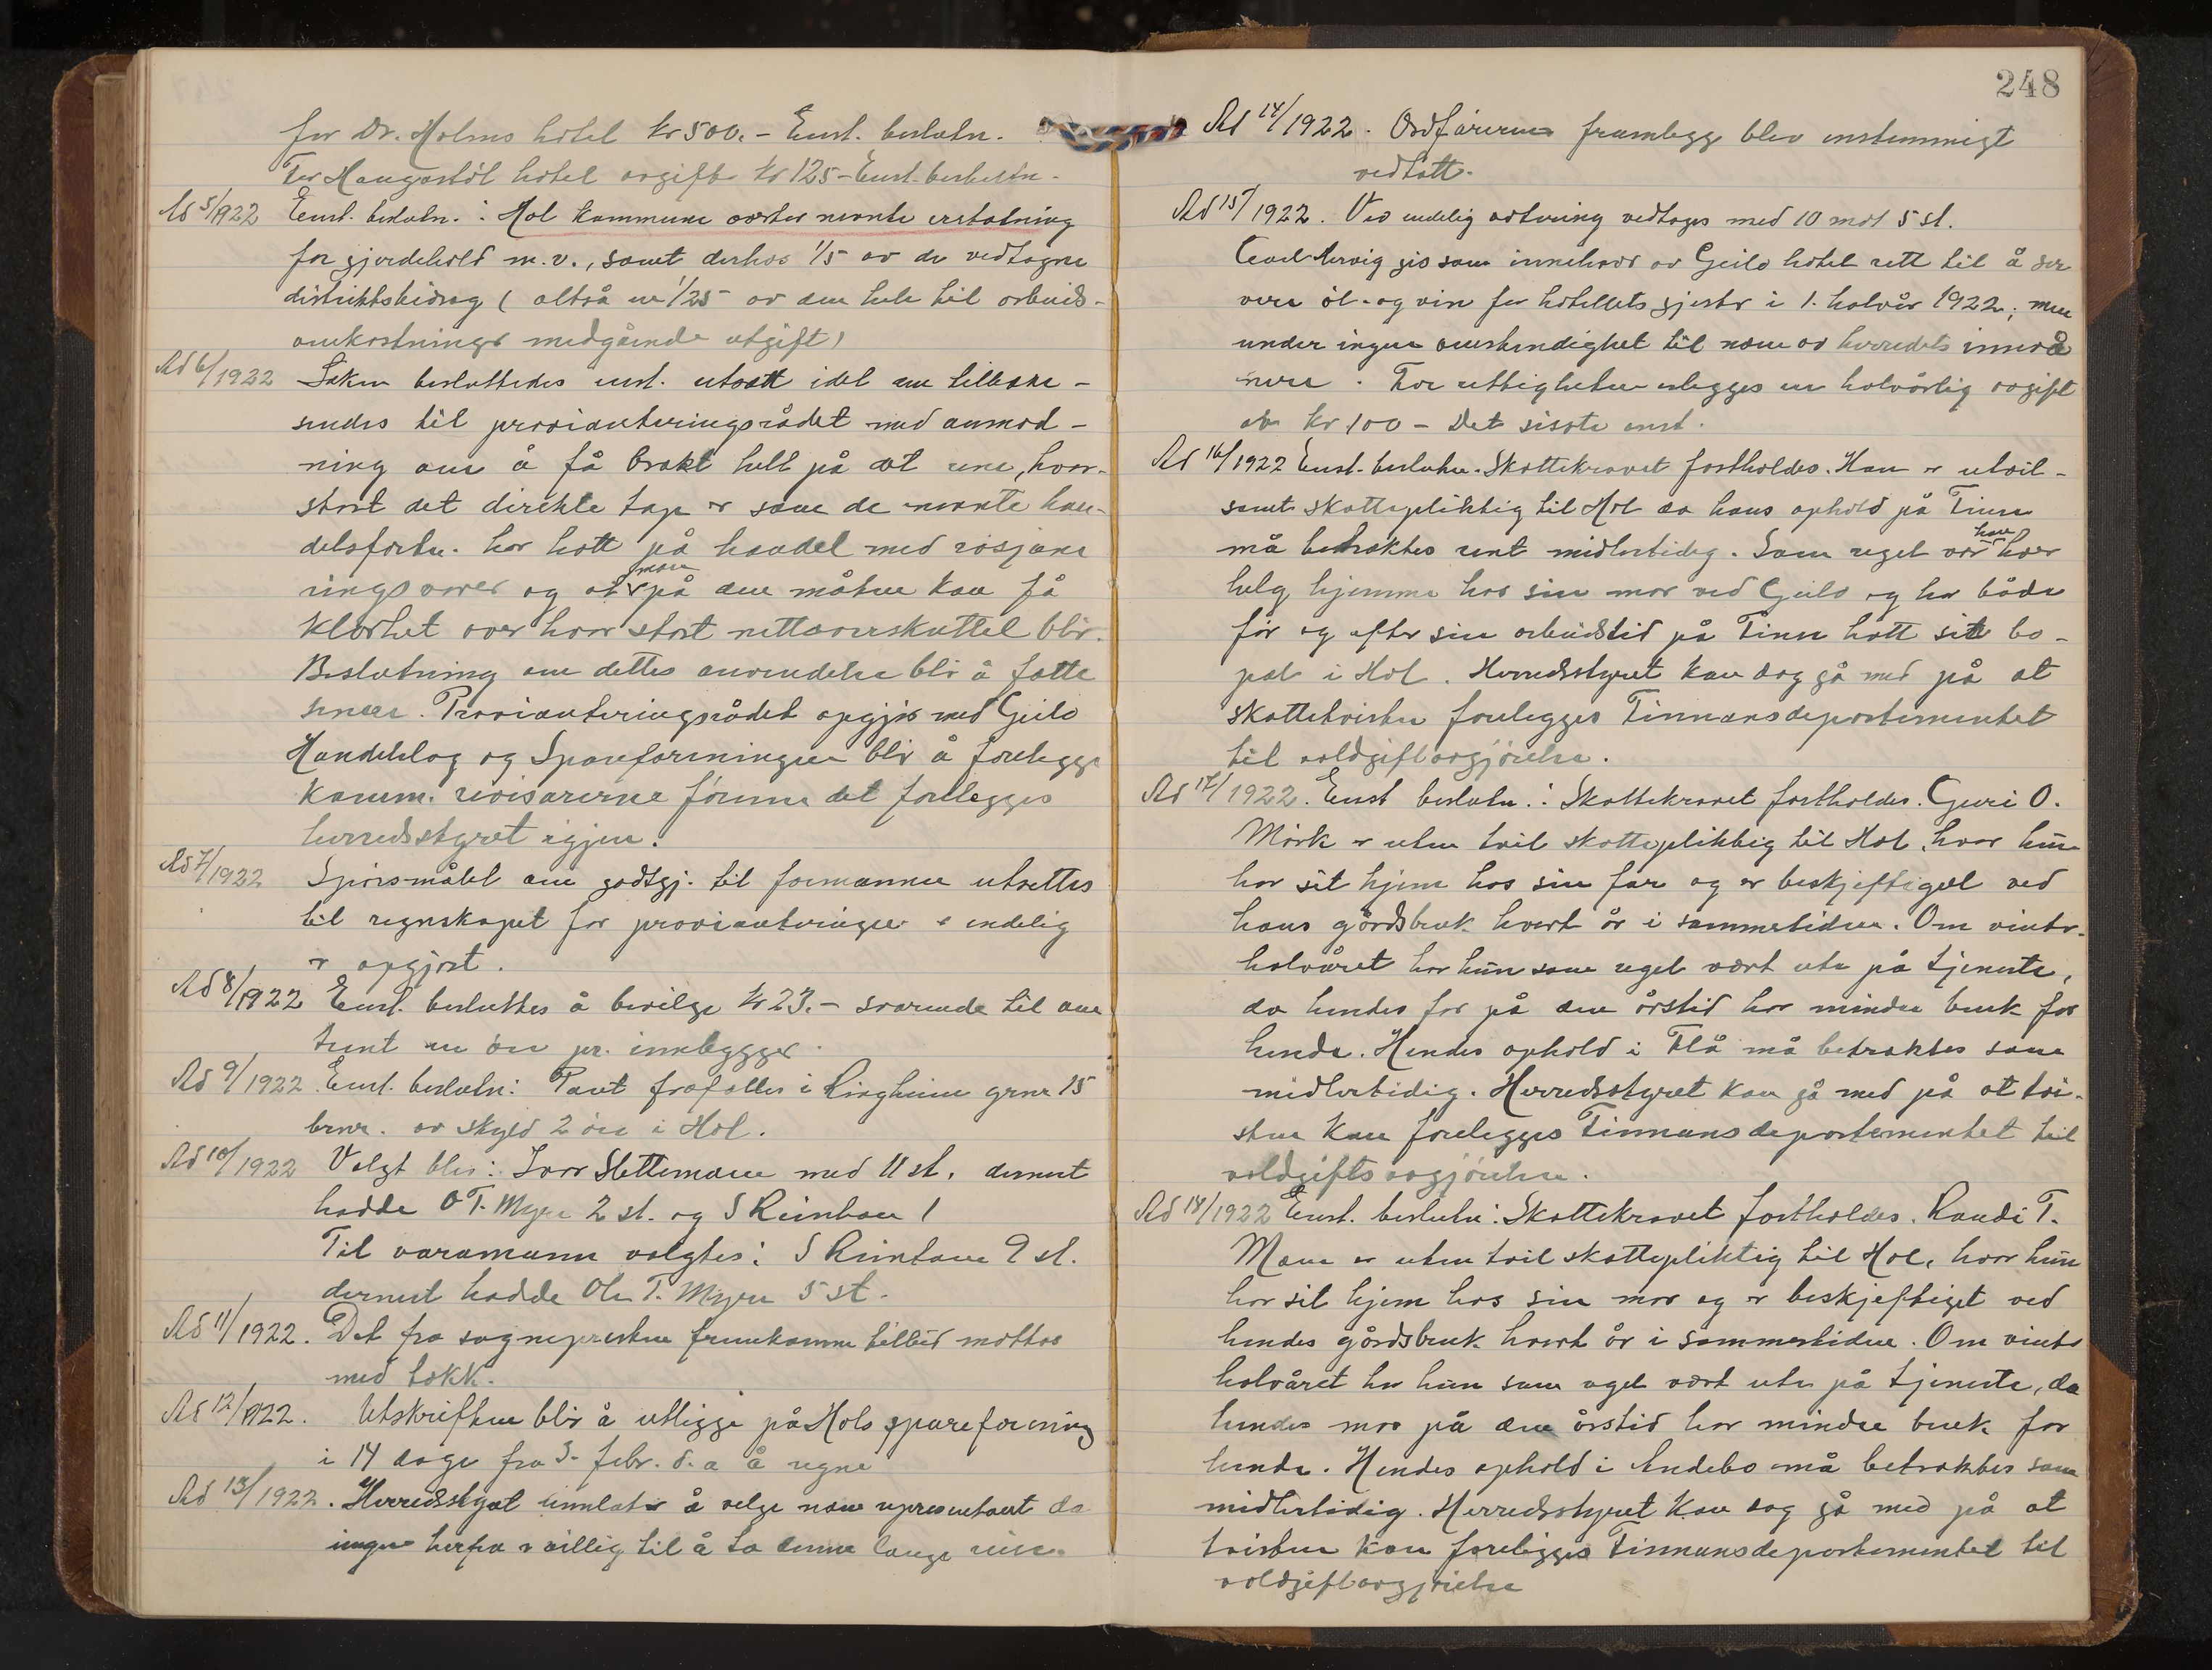 for Dr. Holms hotel kr 500.- Enst. beslutn.
For Haugastöl hotel avgift kr 125 - Enst. beslutn.
Ad 5/1922 Enst. beslutn.: Hol kommune vedtar nevnte erstatning
for gjerdehold m.v., samt derhos 1/5 av de vedtagne
distriktsbidrag (altså en 1/25 av den hele til arbeids-
omkostninger medgående utgift)
Ad 6/1922 Saken besluttedes enst. utsatt idet en tilbake-
sendes til provianteringsrådet med anmod-
ning om å få brakt helt på det rene, hvor-
stort det direkte tap er som de nevnte han-
delsforetn. har hatt på handel med rasjone
ringsvarer og at man på den måten kan få
klarhet over hvor stort nettooverskuttet blir.
Beslutning om dettes anvendelse blir å fatte
senere. Provianteringsrådets opgjör med Geilo
Handelslag og Spareforeningen blir å forelegge
komm. revisorerne förenn det forelegges
herredsstyret igjen.
Ad 7/1922 Spörsmålet om godtgj. til formannen utsettes
til regnskapet for provianteringen endelig
er opgjort.
Ad 8/1922 Enst. besluttes å bevilge kr 23.- svarende til om
trent en öre pr. innbygger.
Ad 9/1922. Enst. beslutn: Pant frafalles i Ringheim grnr 15
brnr. av skyld 2 öre i Hol.
Ad 10/1922 Valgt blev: Ivar Slettemoen med 11 st. dernest
hadde O T. Myen 2 st. og S Reinton 1
Til varamann valgtes: S Reinton 9 st.
dernest hadde Ole T. Myen 5 st.
Ad 11/1922. Det fra sognepresten fremkomne tilbud mottas
med takk.
Ad 12/1922. Utskriften blir å utligge på Hols spareforening
i 14 dage fra 3. febr. d.a å regne
Ad 13/1922. Herredsstyret unnlater å velge noen representant da
ingen herfra er villig til å ta denne lange reise.
248
Ad 14/1922. Ordförerens framlegg blev enstemmigt
vedtatt.
Ad 15/1922. Ved endelig avstemning vedtages med 10 mot 5 st.
gis som innehaver av Geilo hotel rett til å ser
vere öl- og vin for hotellets gjester i 1. halvår 1922; men
under ingen omstendighet til noen av herredets innvå
nere. For rettigheten erlegges en halvårlig avgift
av kr 100 - Det sisste enst.
Ad 16/1922 Enst. beslutn. Skattekravet fastholdes. Han er utvil-
somt skattepliktig til Hol da hans ophold på Finse
må betraktes rent midlertidig. Som regel var han hver
helg hjemme hos sin mor ved Geilo og har både
för og efter sin arbeidstid på Finse hatt sitt bo-
pæl i Hol. Herredsstyret kan dog gå med på at
skattetvisten forelegges Finnansdepartementet
til voldgiftsavgjörelse.
Ad 17/1922. Enst beslutn.: Skattekravet fastholdes. Guri O.
Mörk er uten tvil skattepliktig til Hol, hvor hun
har sit hjem hos sin far og er beskjeftiget ved
hans gårdsbruk hvert år i sommertiden. Om vinter-
halvåret har hun som regel vært ute på tjeneste,
da hendes far på den årstid har mindre bruk for
hende. Hendes ophold i Flå må betraktes som
midlertidig. Herredsstyret kan gå med på at tvi-
sten kan forelegges Finnansdepartementet til
voldgiftsavgjörelse.
Ad 18/1922 Enst. beslutn: Skattekravet fastholdes. Randi T.
Moen er uten tvil skattepliktig til Hol, hvor hun
har sit hjem hos sin mor og er beskjeftiget ved
hendes gårdsbruk hvert år i sommertiden. Om vinter
halvåret har hun som regel vært ute på tjeneste, da
hendes mor på den årstid har mindre bruk for
hende. Hendes ophold i Andebo må betraktes som
midlertidig. Herredsstyret kan dog gå med på at
tvisten kan forelegges Finnansdepartementet til
voldgiftsavgjörelse